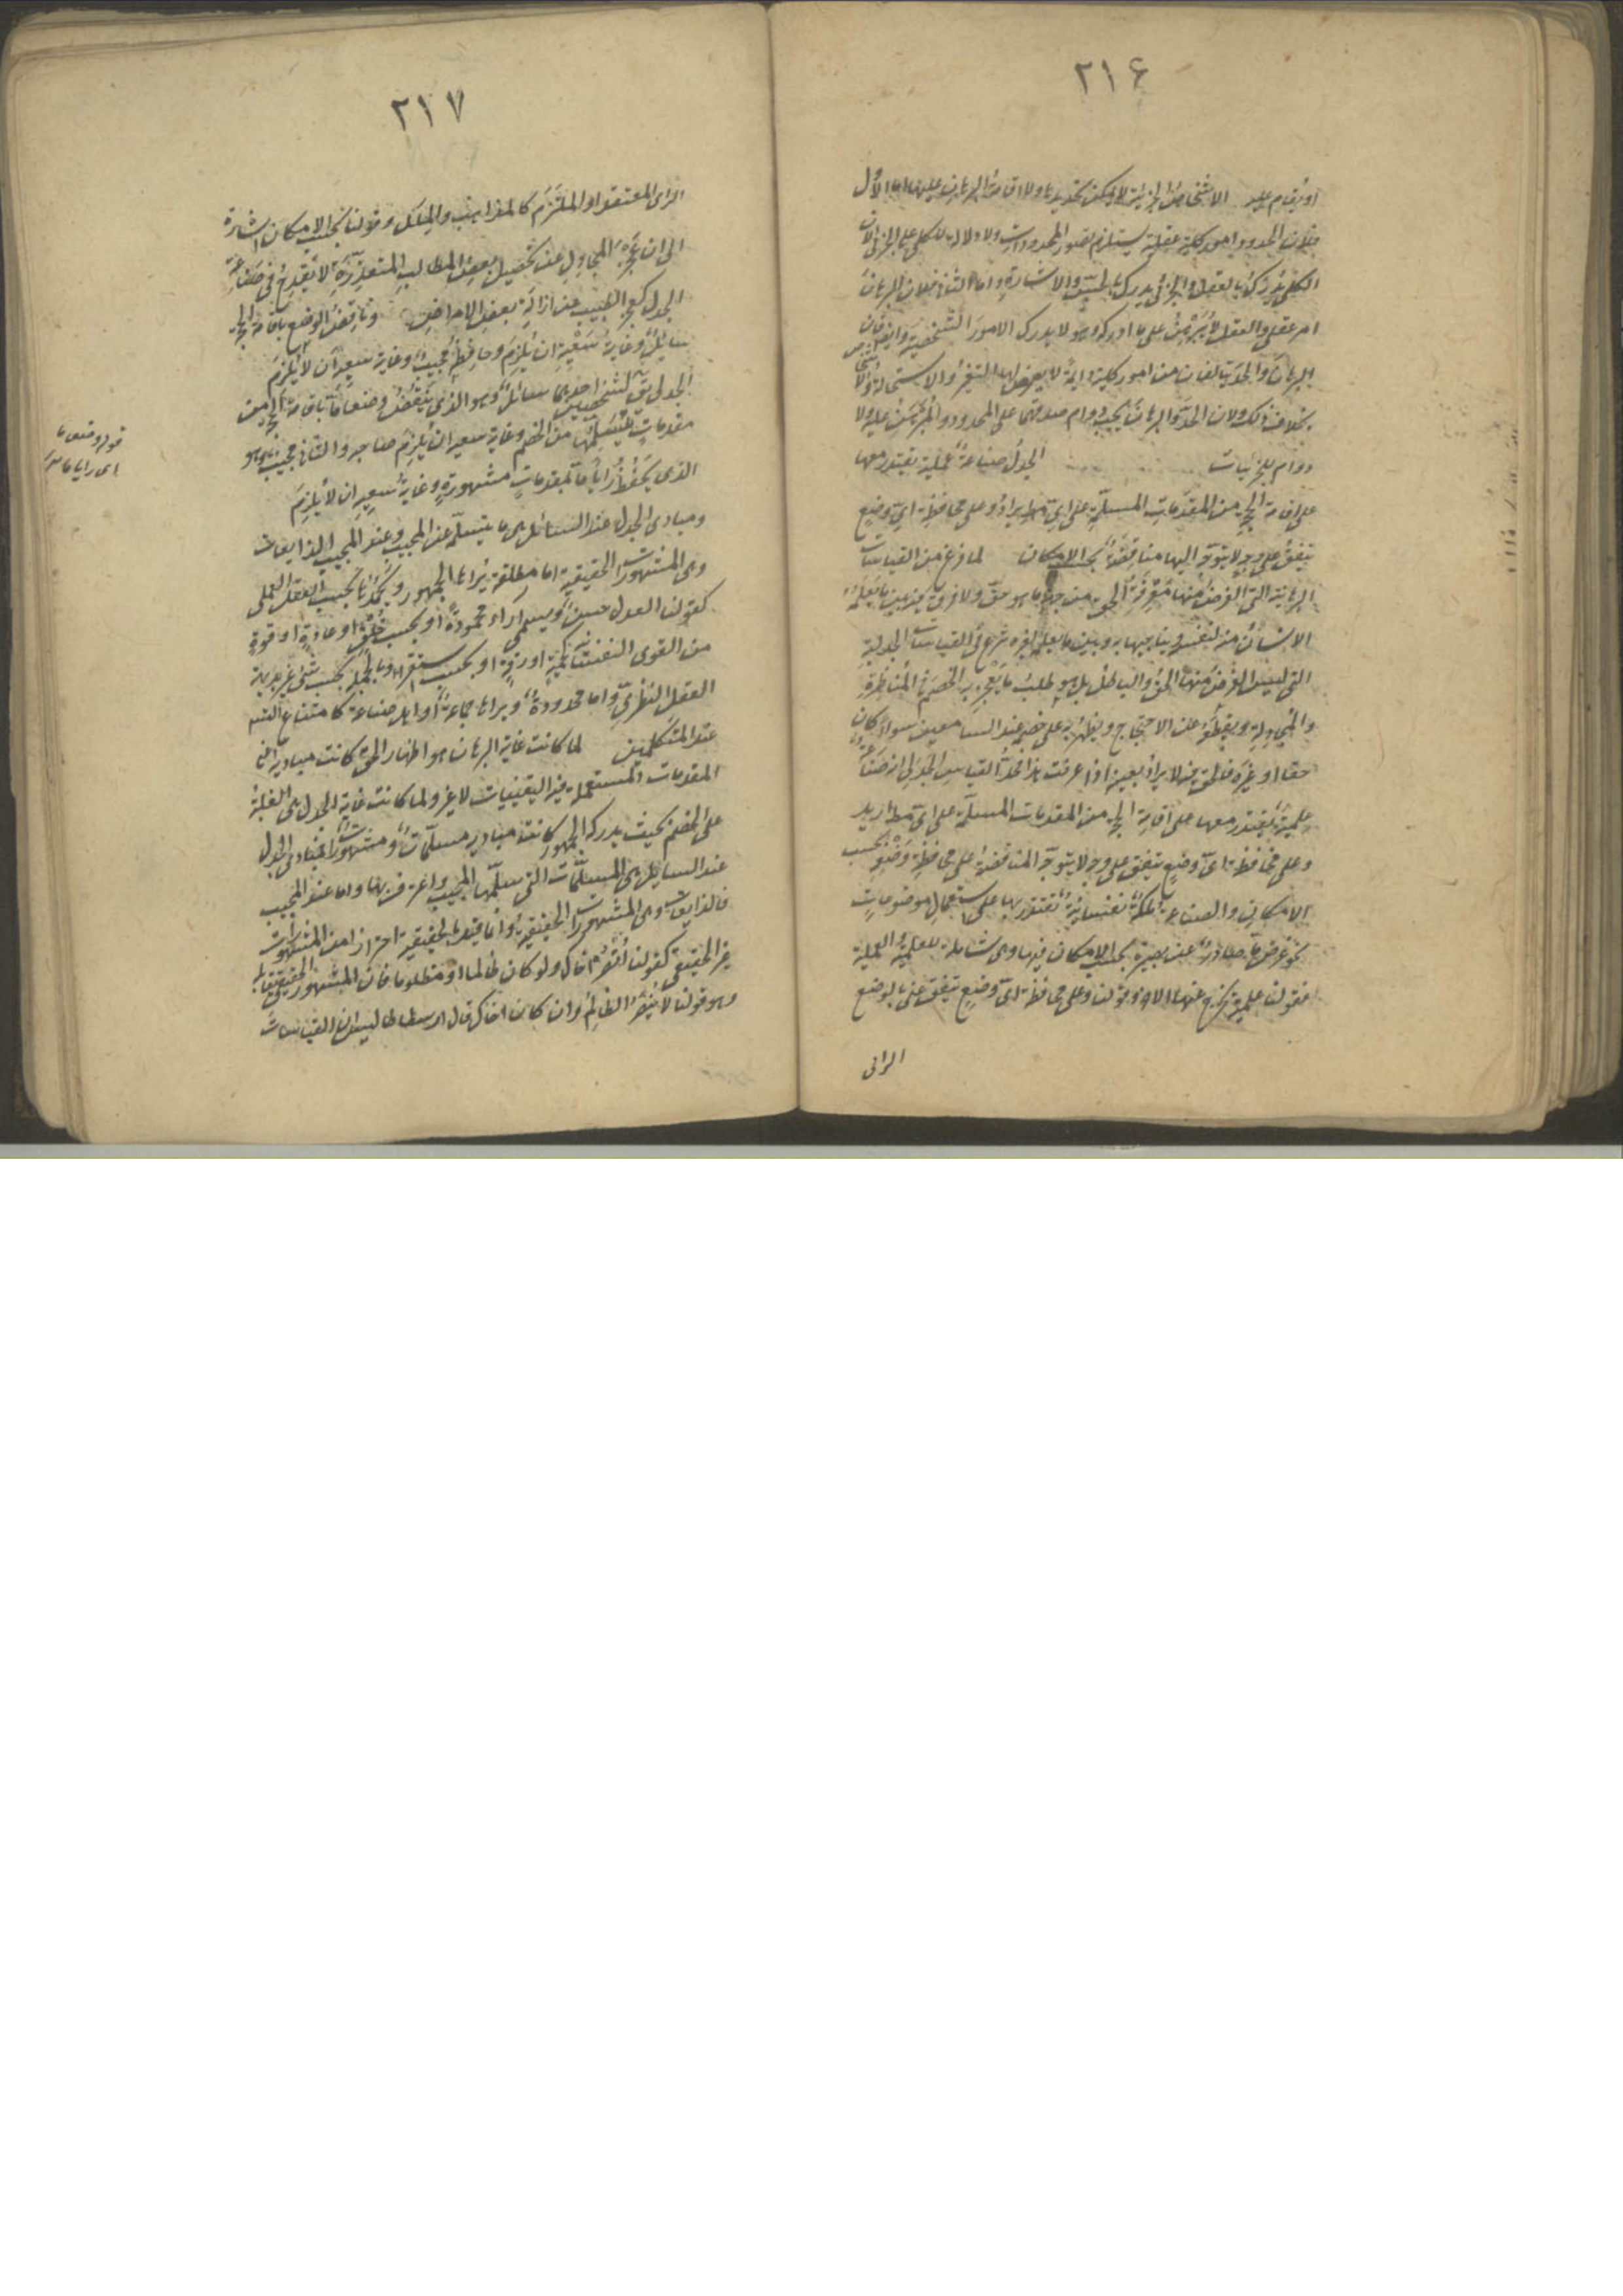 ٢١۶
او يقام عليه الاشخاص الجزئية لا يمكن تحديدها ولا اقامة البرهان عليها اما الاول
فلان الحدود امور كلية عقلية يستلزم تصور المحدودات ولا دلالة للكلى على الجزئى لان
الكلى يدرك بالعقل والجزئى يدرك بالحس والاشارة واما الثانى فلان البرهان
امر عقلى والعقل لا يبرهن على ما ادركه وهو لا يدرك الامور الشخصية وايضا فان
البرهان والحد يتالفان من امور كلية دايمة لا يعرض لها التغير والاستحالة والاشخاص
بخلاف ذلك ولان الحد والبرهان يجب دوام صدقهما على المحدود والمبرهن عليه ولا
دوام للجزئيات الجدل صناعة علمية يقتدر معها
على اقامة الحجة من المقدمات المسلمة على اى مط يراد وعلى محافظة اى وضع
يتفق على وجه لا يتوجه اليها مناقضة بحسب الامكان لما فرغ من القياسات
البرهانية التى الغرض منها معرفة الحق من جهة ما هو حق ولا فرق فيه بين ما يعلمه
الانسان من نفسه ويناجيها به وبين ما يعلم غيره شرع فى القياسات الجدلية
التى ليس الغرض منها الحق والباطل بل هو طلب ما يعجز به الخصم فى المناظرة
والمجادلة ويقطعه عن الاحتجاج ويظهر به على خصمه عند السامعين سواء كان
حقا او غيره فالحق فيه لا يراد بعينه اذا عرفت هذا فحد القياس الجدلى انه صناعة
علمية يقتدر معها على اقامة الحجة من المقدمات المسلمة على اى مط اريد
وعلى محافظة اى وضع يتفق على وجه لا يتوجه المناقضة على محافظة وضعه بحسب
الامكان والصناعة ملكة نفسانية يقتدر بها على استعمال موضوعات
نحو غرض ما صادرة عن بصيرة بحسب الامكان فيها وهى شاملة للعلمية والعملية
فقولنا علمية يخرج عنها الاخر وقولنا وعلى محافظة اى وضع يتفق عنى بالوضع
الراى
٢١٧
الراى المعتقد او الملتزم كالمذاهب والملل وقولنا بحسب الامكان اشارة
الى ان عجز المجادل عن تحصيل بعض المطالب المتعذرة لا يقدح فى صناعة
الجدل كعجز الطبيب عن ازالة بعض الامراض وناقض الوضع باقامة الحجة
سايل وغاية سعيه ان يلزم وحافظه مجيب وغاية سعيه ان لا يلزم
الجدلى يق لشخصين احدهما سائل وهو الذى ينقض وضعا ما باقامة الحجة من
مقدمات يتسلمها من الخصم وغاية سعيه ان يلزم صاحبه والثانى مجيب وهو
الذى يحفظ رايا ما بمقدمات مشهورة وغاية سعيه ان لا يلزم
ومبادى الجدل عند السائل هى ما يتسلمه عن المجيب وعند المجيب الذايعات
وهى المشهورات الحقيقية اما مطلقة يراها الجمهور ويحمدها بحسب العقل العملى
كقولنا العدل حسن ويسمى اراء محمودة او بحسب خلق او عادة او قوة
من القوى النفسانية كحمية او رقة او بحسب استقراء وبالجملة بحسب شئ غير بديهة
العقل النظرى واما محدودة ويراها جماعة او اهل صناعة كامتناع التس
عند المتكلمين لما كانت غاية البرهان هو اظهار الحق كانت مباديه اى
المقدمات المستعملة فيه اليقينيات لا غير ولما كانت غاية الجدل هى الغلبة
على الخصم بحيث يدركه الجمهور كانت مباديه مسلمات او مشهورات فمبادى الجدل
عند السايل هى المسلمات التى سلمها المجيب واعترف بها واما عند المجيب
فالذايعات وهى المشهورات الحقيقية وانما قيد بالحقيقية احترازا من المشهورات
غير الحقيقى كقولنا انصر اخاك ولو كان ظالما او مظلوما فان المشهور الحقيقى يقابله
وهو قولنا لا ينصر الظالم وان كان اخاك قال ارسطاطاليس ان القياسات
قوله وضعا ما
اى رايا ما